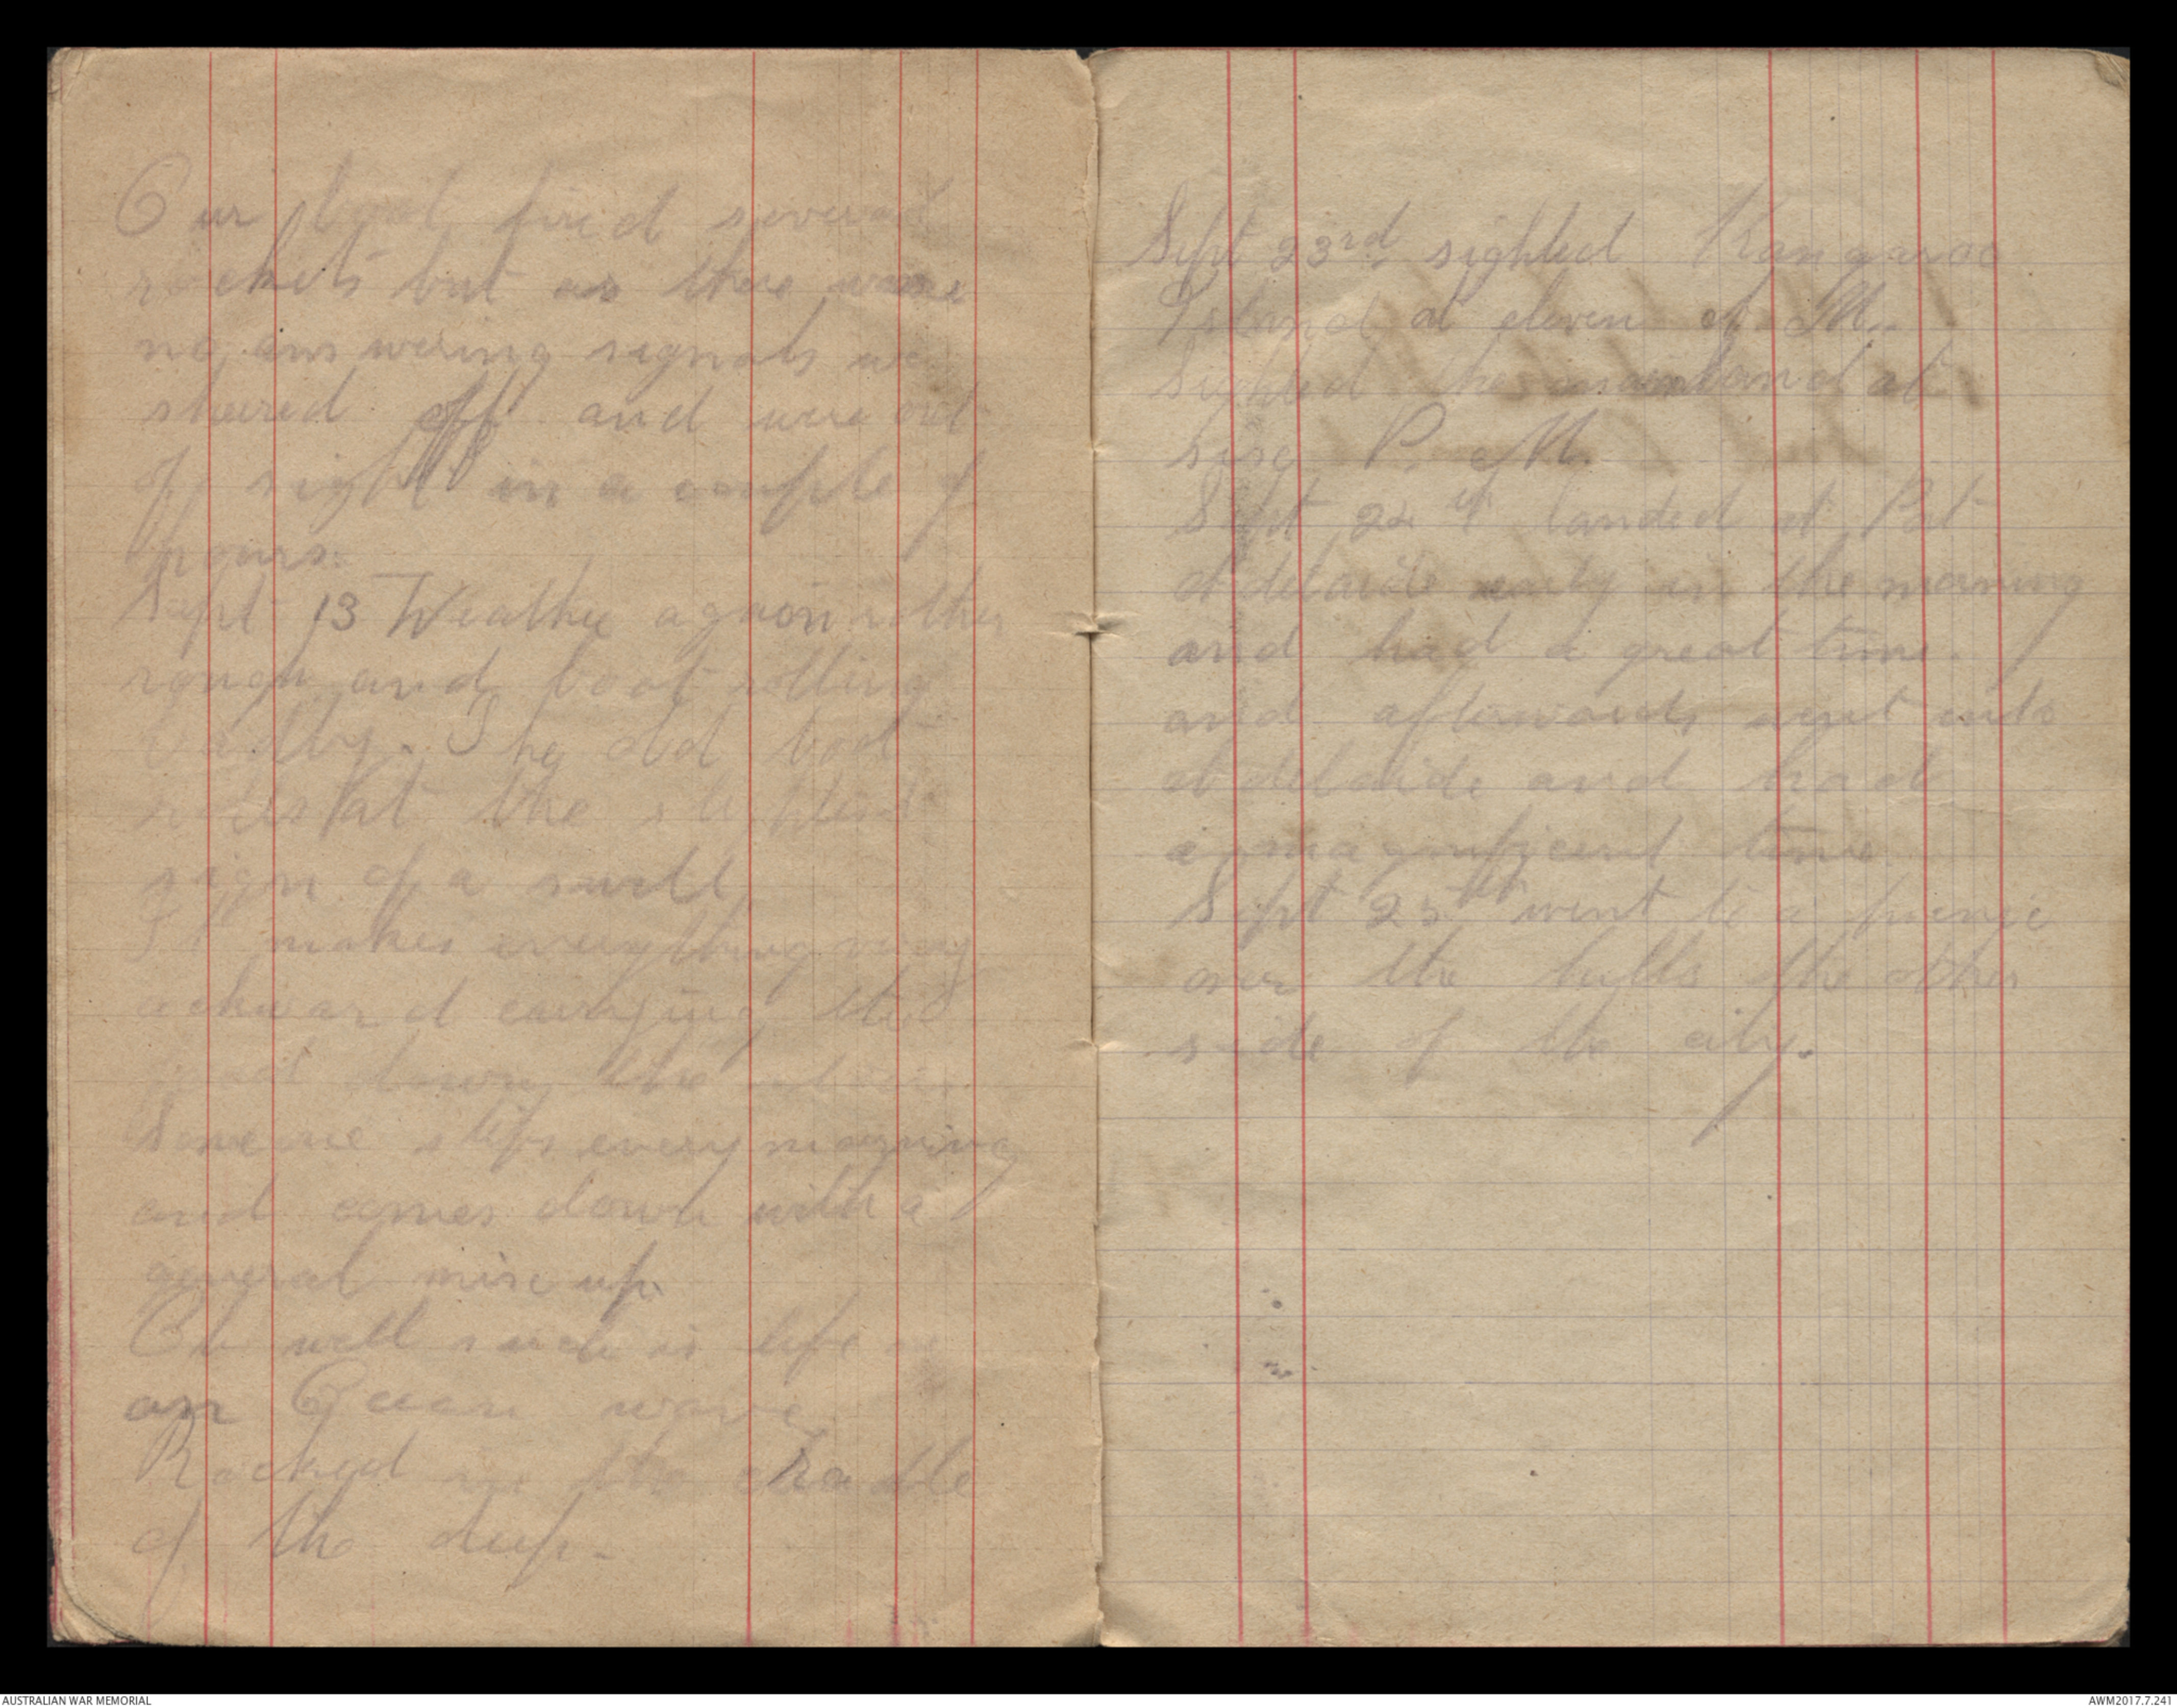 Our boat fired several
rockets but as there were
no answering signals we
sheered off and were out
of sight in a couple of
hours.
Sept 13 Weather again rather
rough and boat rolling
badly. The old boat
rolls at the slightest
sign of a swell
It makes everything very
ackward carrying the
down the
Someone slips every morning
and comes down with a
general mix up.
Oh well such is life on
an Ocean wave.
Rocked in the cradle
of the deep.
Sept 23rd sighted Kangaroo
Island at eleven A.M.
Sighted the mainland at
six P.M.
Sept 24th landed at Port
Adelaide early in the morning
and had a great time.
and afterwards went into
Adelaide and had
a magnificent time
Sept 25th went to a picnic
over the hills the other
side of the city.
AUSTRALIAN WAR MEMORIAL
AWM2017.7.241